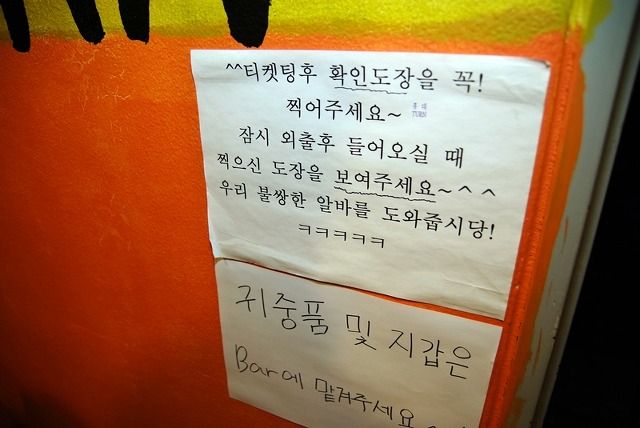 ^^티켓팅후 확인도장을 꼭!
찍어주세요~
TURN
잠시 외출후 들어오실 때
찍으신 도장을 보여주세요~^^
우리 불쌍한 알바를 도와줍시당!
ㅋㅋㅋㅋㅋ
귀중품 및 지갑은
Bar에 맡겨주세요~